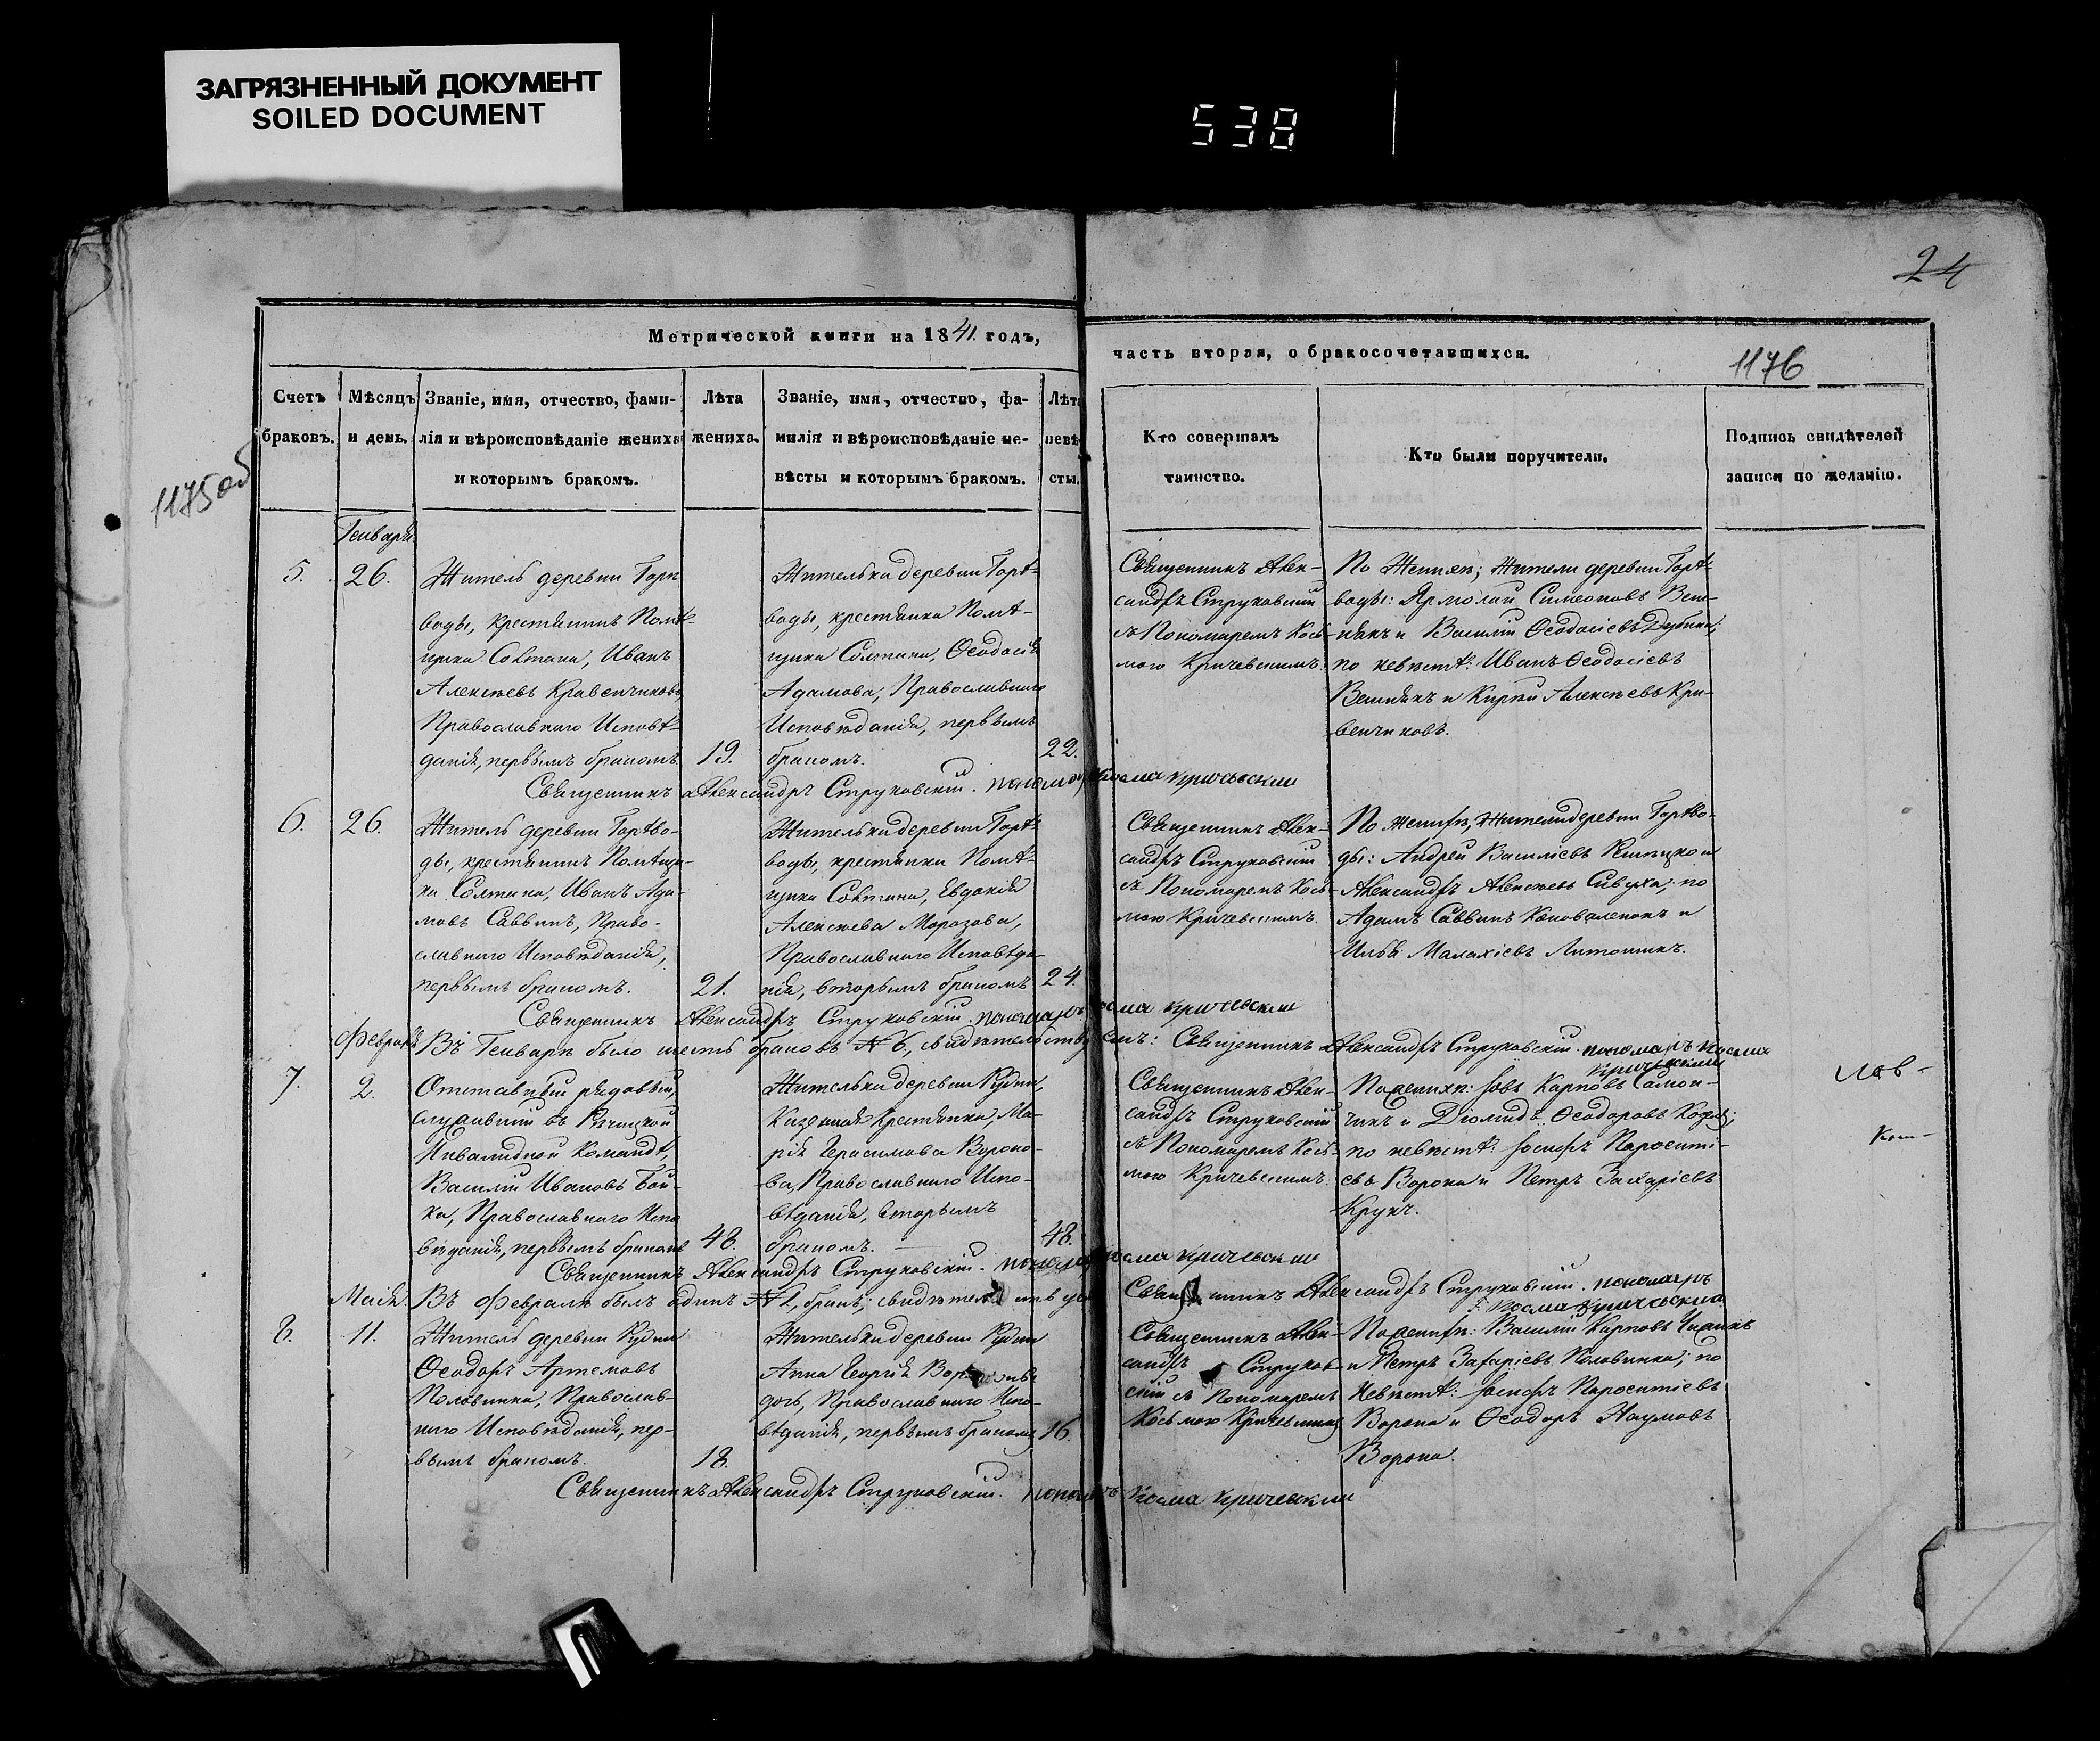 ЗАГРЯЗНЕННЫЙ ДОКУМЕНТ
SOILED DOCUMENT
538
24
Метрической книги на 1841. годъ,
часть вторая, о бракосочетавшихся.
1176
1175об
Счетъ браковъ.
Мѣсяцъ и день.
Званіе, имя, отчество, фами-
лія и вѣроисповѣданіе жениха
и которымъ бракомъ.
Лѣта
жениха.
Званіе, имя, отчество, фа-
милія и вѣроисповѣданіе не-
вѣсты и которымъ бракомъ.
Лѣта
невѣ
сты.
Кто совершалъ
таинство.
Кто были поручители.
Подпись свидѣтелей
записи по желанію.
Генваря.
5.
26.
Житель деревни Горѣ
воды, крестьянинъ Помѣ-
щика Солтана, Иванъ
Алексѣевъ Кравенчиковъ,
Православнаго Исповѣ-
данія, первымъ бракомъ
19.
Жителька деревни Горѣ-
воды, крестьянка Помѣ-
щика Солтана, Ѳеодосія
Адамова, Православнаго
Исповѣданія, первымъ
бракомъ.
22.
Священникъ Алек-
сандръ Струковскій
съ Пономаремъ Кось-
мою Кричевскимъ.
По Женихѣ; Жители деревни Горѣ-
воды: Ярмолай Симеоновъ
и Василій Ѳеодосіевъ
по невѣстѣ: Иванъ Ѳеодосіевъ
и Алексѣевъ Кра-
венчиковъ.
Священникъ Александръ Струковскій. пономарь Косма Кричевский
6.
26.
Житель деревни Горѣво-
ды, крестьянинъ Помѣщи-
ка Солтана, Иванъ Ада-
мовъ Саввинъ, Право-
славнаго Исповѣданія,
первымъ бракомъ.
21.
Жителька деревни Горѣ-
воды, крестьянка Помѣ-
щика Солтана, Евдокія
Алексѣева Морозова,
Православнаго Исповѣда-
нія, вторымъ бракомъ
24.
Священникъ Алек-
сандръ Струковскій
съ Пономаремъ Кось-
мою Кричевскимъ.
По женихѣ, Жители деревни Горѣво-
ды: Андрей Василіевъ и
Александръ Алексѣевъ Сивуха; по
Адамъ Саввинъ Коноваленокъ и
Илья Малахіевъ
Священникъ Александръ Струковскій. пономарь Косма Кричевский
Февраль
Въ Генварѣ было шесть браковъ № 6, свидѣтельствуемъ: Священникъ Александръ Струковскій. пономарь Косма
Кричевский
7.
2.
Отставный рядовый,
служившій въ Рѣчицкой
Инвалидной Командѣ,
Василій Ивановъ Бой-
ка, Православнаго Испо
вѣданія, первымъ бракомъ
48.
Жителька деревни Рудни,
Казенная Крестьянка, Ма-
рія Герасимова Вороно-
ва, Православнаго Испо-
вѣданія, вторымъ
бракомъ.
48.
Священникъ Алек-
сандръ Струковскій
съ Пономаремъ Кось-
мою Кричевскимъ.
По женихѣ: Іовъ Карповъ Самой-
и Ѳеодоровъ
по невѣстѣ: Іосифъ
Ворона и Петръ Захаріевъ
Крукъ.
Священникъ Александръ Струковскій. пономарь Косма Кричевский
Маія.
Въ Февралѣ былъ одинъ № 1, бракъ; Священникъ Александръ Струковскій. пономарь
Косма Кричевский
8.
11.
Житель деревни Рудни
Ѳеодоръ Артемовъ
Половинка, Православ-
наго Исповѣданія, пер-
вымъ бракомъ.
18.
Жителька деревни Рудни
Анна Георгія
дочь, Православнаго Испо-
вѣданія, первымъ бракомъ
16.
Священникъ Алек-
сандръ Струков-
скій съ Пономаремъ
Косьмою Кричевскимъ
По женихѣ: Василій Карповъ
и Петръ Захаріевъ Половинка; по
Невѣстѣ: Іосифъ
Ворона и Ѳеодоръ Наумовъ
Ворона.
Священникъ Александръ Струковскій. пономарь Косма Кричевский